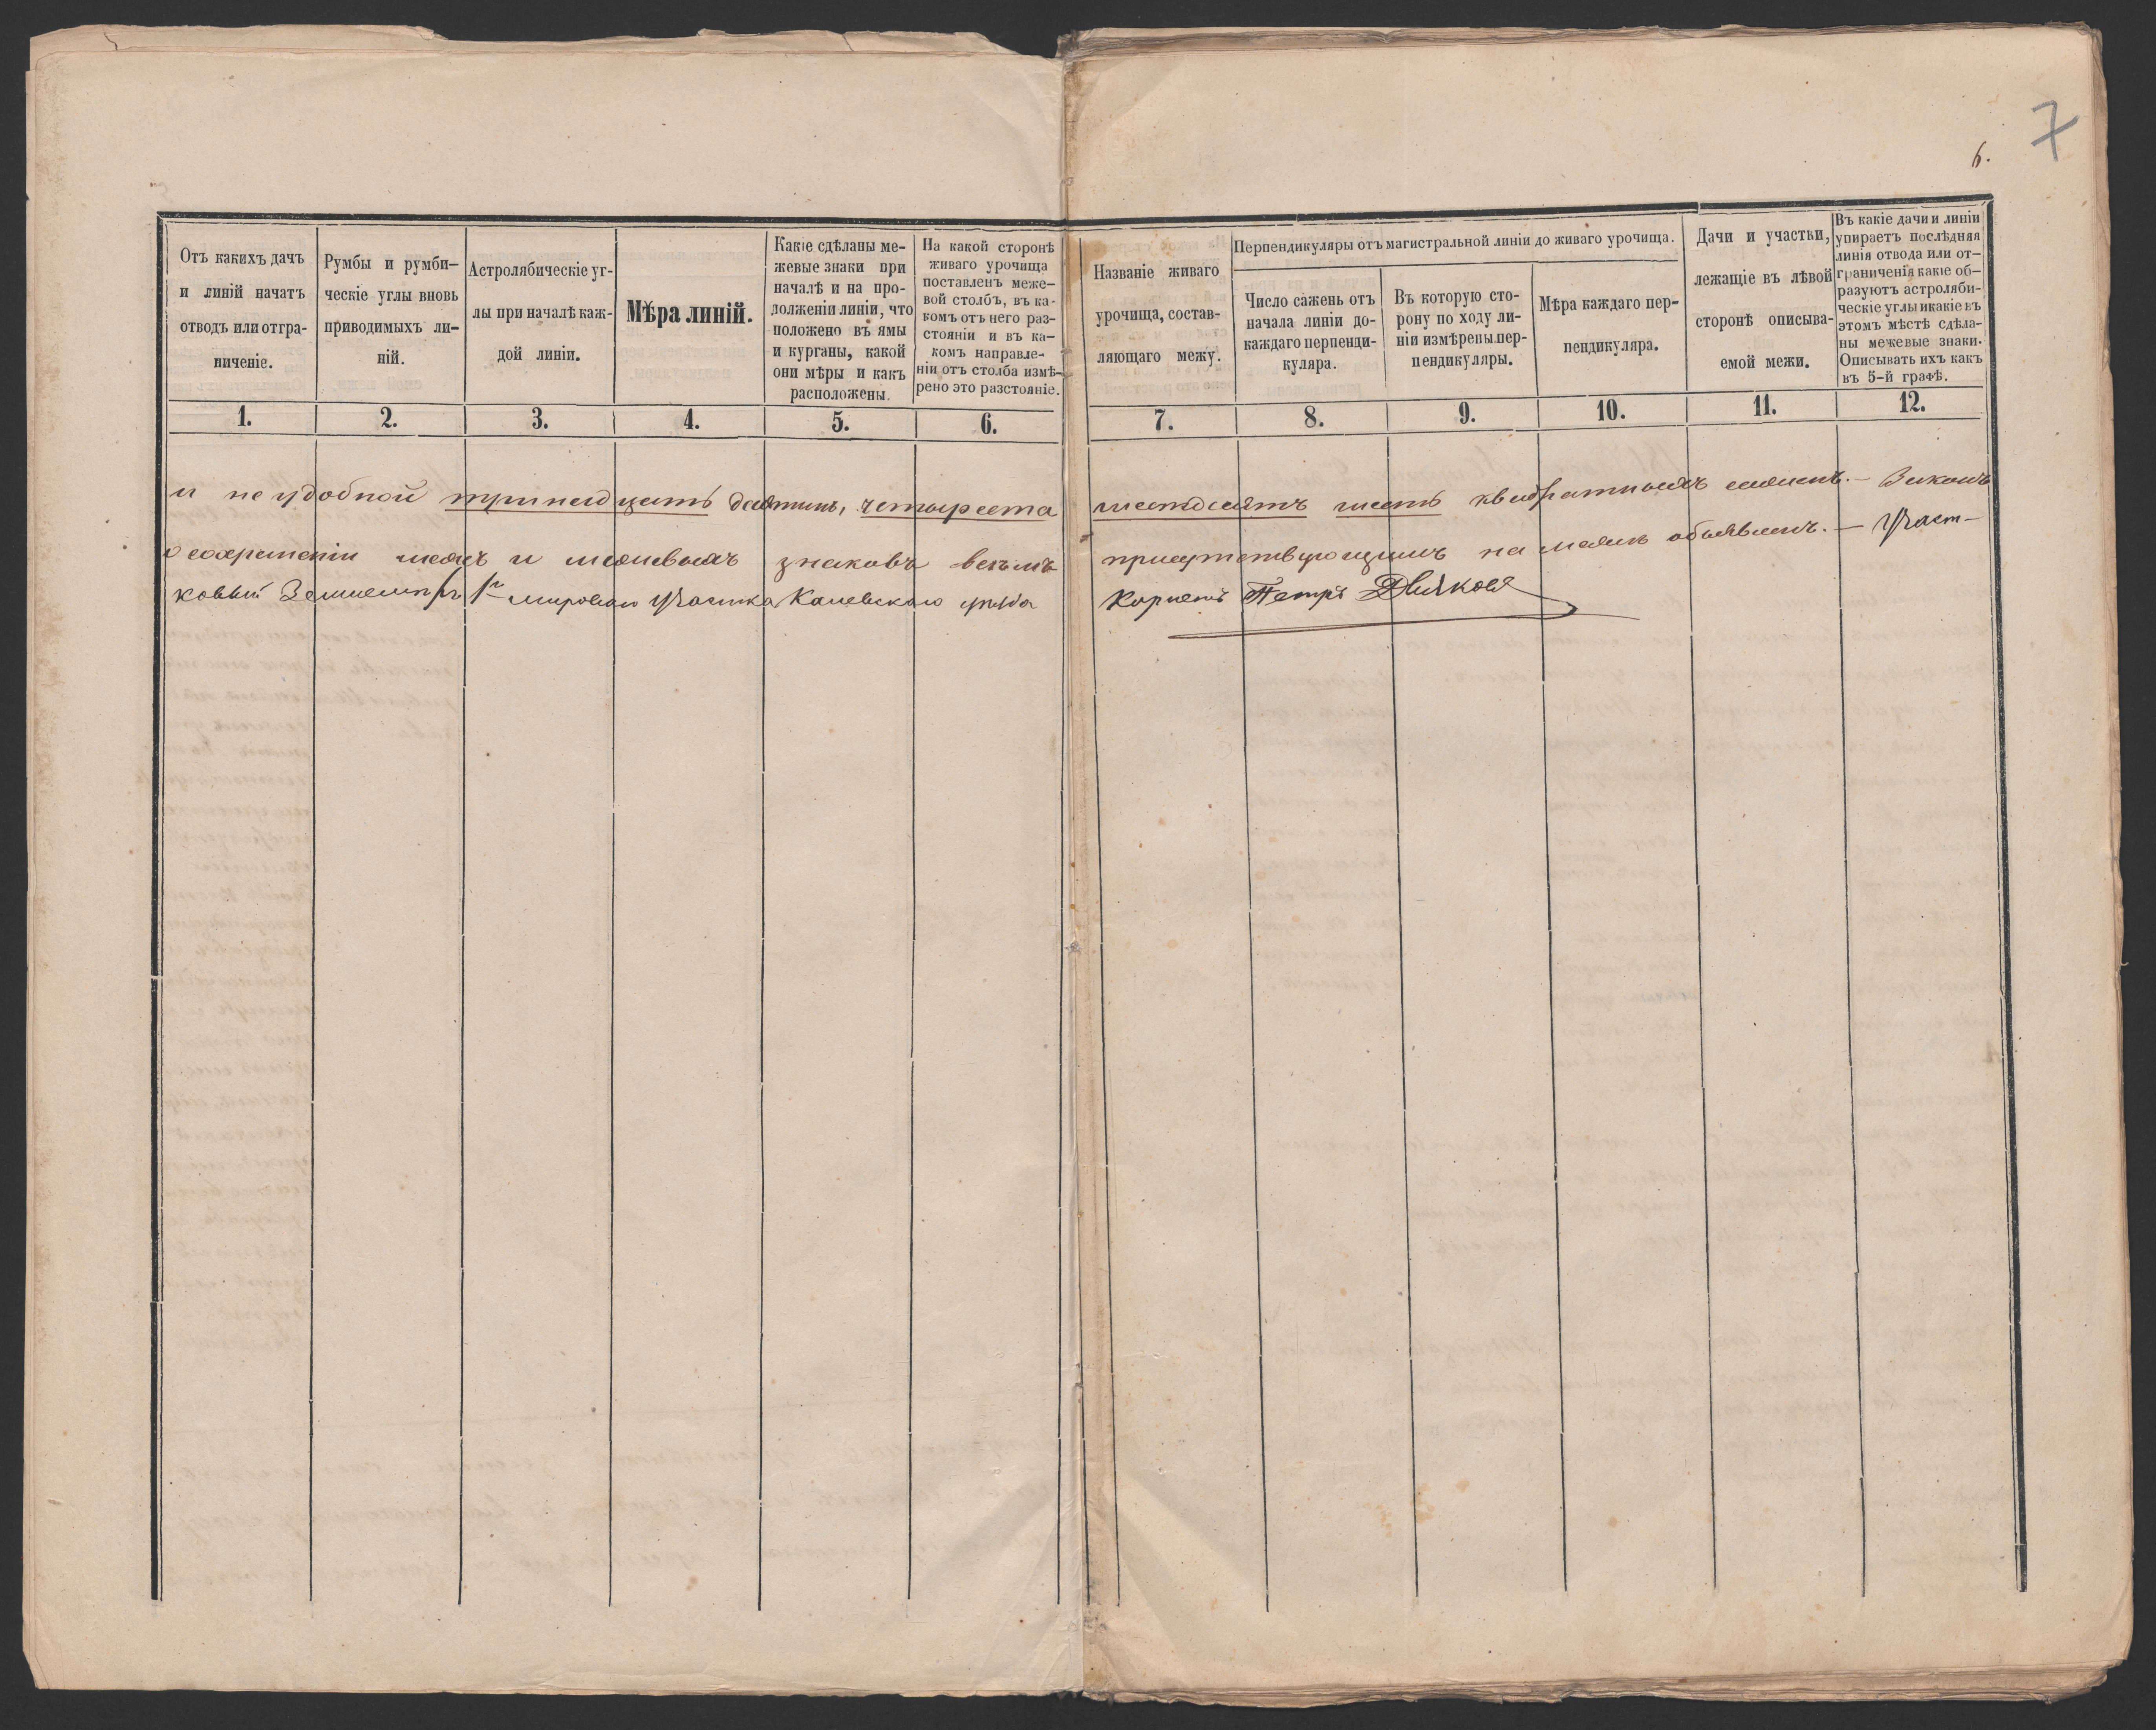 7
6.
Отъ какихъ дачъ
и линій начатъ
отводъ или отгра-
ниченіе.
Румбы и румби-
ческіе углы вновь
приводимыхъ ли-
ній.
Астролябическіе уг-
лы при началѣ каж-
дой линіи.
Мѣра линій.
Какіе сдѣланы ме-
жевые знаки при
началѣ и на про-
долженіи линіи, что
положено въ ямы
и курганы, какой
они мѣры и какъ
расположены.
На какой сторонѣ
живаго урочища
поставленъ меже-
вой столбъ, въ ка-
комъ отъ него раз-
стояніи и въ ка-
комъ направле-
ніи отъ столба измѣ-
рено это разстояніе.
Названіе живаго
урочища, состав-
ляющаго межу.
Перпендикуляры отъ магистральной линіи до живаго урочища.
Число сажень отъ
начала линіи до-
каждаго перпенди-
куляра.
Въ которую сто-
рону по ходу ли-
ніи измѣрены пер-
пендикуляры.
Мѣра каждаго пер-
пендикуляра.
Дачи и участки,
лежащіе въ лѣвой
сторонѣ описыва-
емой межи.
Въ какіе дачи и линіи
упираетъ послѣдняя
линія отвода или от-
граниченія какіе об-
разуютъ астроляби-
ческіе углы икакіе въ
этомъ мѣстѣ сдѣла-
ны межевые знаки.
Описывать ихъ какъ
въ 5-й графѣ.
1. 2. 3. 4. 5. 6. 7. 8. 9. 10. 11. 12.
и неудобной тринадцать десятинъ, четыреста шестдесятъ шесть квадратныхъ сажень. — Законъ
о сохраненіи межъ и межевыхъ знаковъ всѣмъ присутствующимъ на межѣ объявленъ. — Участ-
ковый Землемѣръ 1го мироваго участка Каневскаго уѣзда Корнетъ Петръ